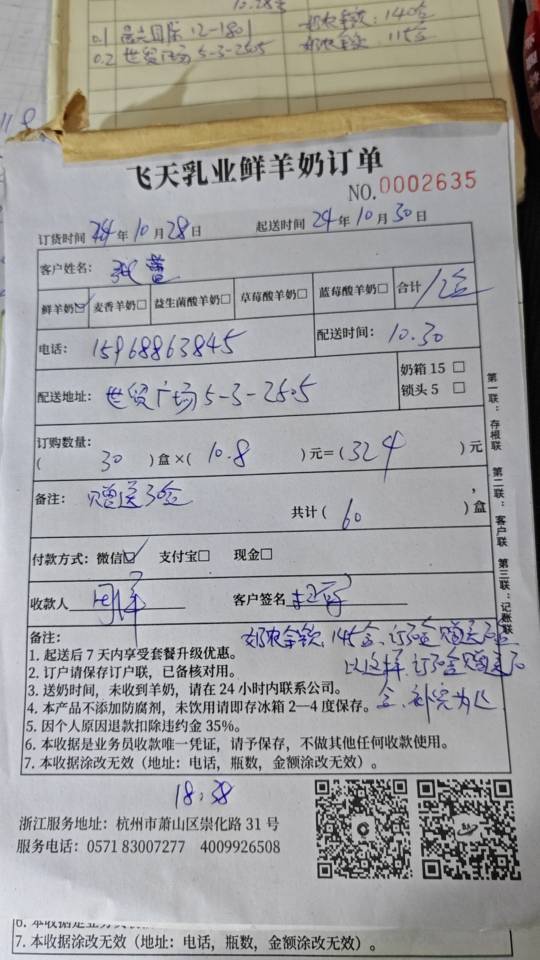 10.28号
0.1 12-1801 奶农拿款：140盒
0.2 世贸广场5-3-2505 奶农拿款：115盒
飞天乳业鲜羊奶订单
NO.0002635
订货时间 24年10月28日 起送时间 24年10月30日
客户姓名：
鲜羊奶☑ 麦香羊奶□ 益生菌酸羊奶□ 草莓酸羊奶□ 蓝莓酸羊奶□ 合计 1盒
电话：15968863845 配送时间：10.30
配送地址：世贸广场5-3-2505 奶箱 15 □
锁头 5 □
订购数量：
( 30 ) 盒 ×( 10.8 ) 元=( 324 ) 元
备注：赠送30盒 共计( 60 ) 盒
付款方式：微信☑ 支付宝□ 现金□
收款人 客户签名
备注：奶农拿款 145盒，订30盒赠送30盒
1. 起送后 7 天内享受套餐升级优惠。
以这样，订30盒赠送30
2. 订户请保存订户联，已备核对用。
盒，补完为止
3. 送奶时间，未收到羊奶，请在 24 小时内联系公司。
4. 本产品不添加防腐剂，未饮用请即存冰箱 2—4 度保存。
5. 因个人原因退款扣除违约金 35%。
6. 本收据是业务员收款唯一凭证，请予保存，不做其他任何收款使用。
7. 本收据涂改无效（地址：电话，瓶数，金额涂改无效）。
第一联：存根联 第二联：客户联 第三联：记账联
18:38
浙江服务地址：杭州市萧山区崇化路 31 号
服务电话：0571 83007277 4009926508
7. 本收据涂改无效（地址：电话，瓶数，金额涂改无效）。